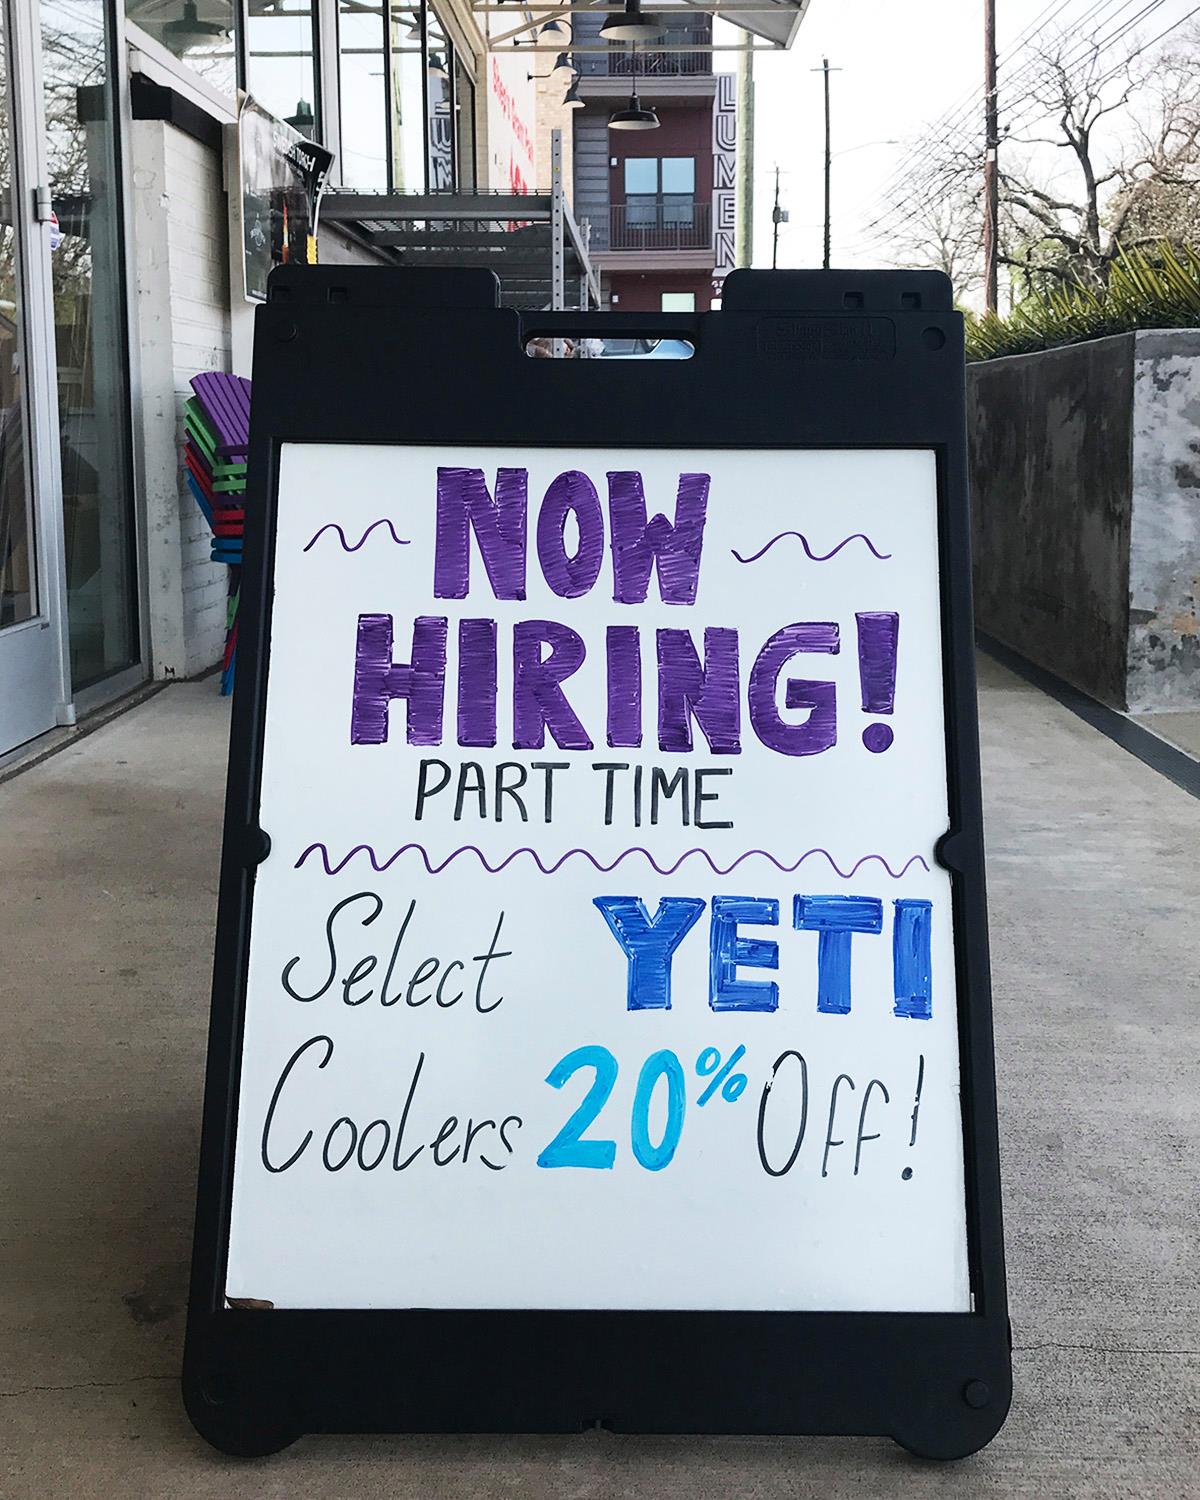 NOW
HIRING!
PART TIME
Select YETI
Coolers 20% Off!
LUMEN